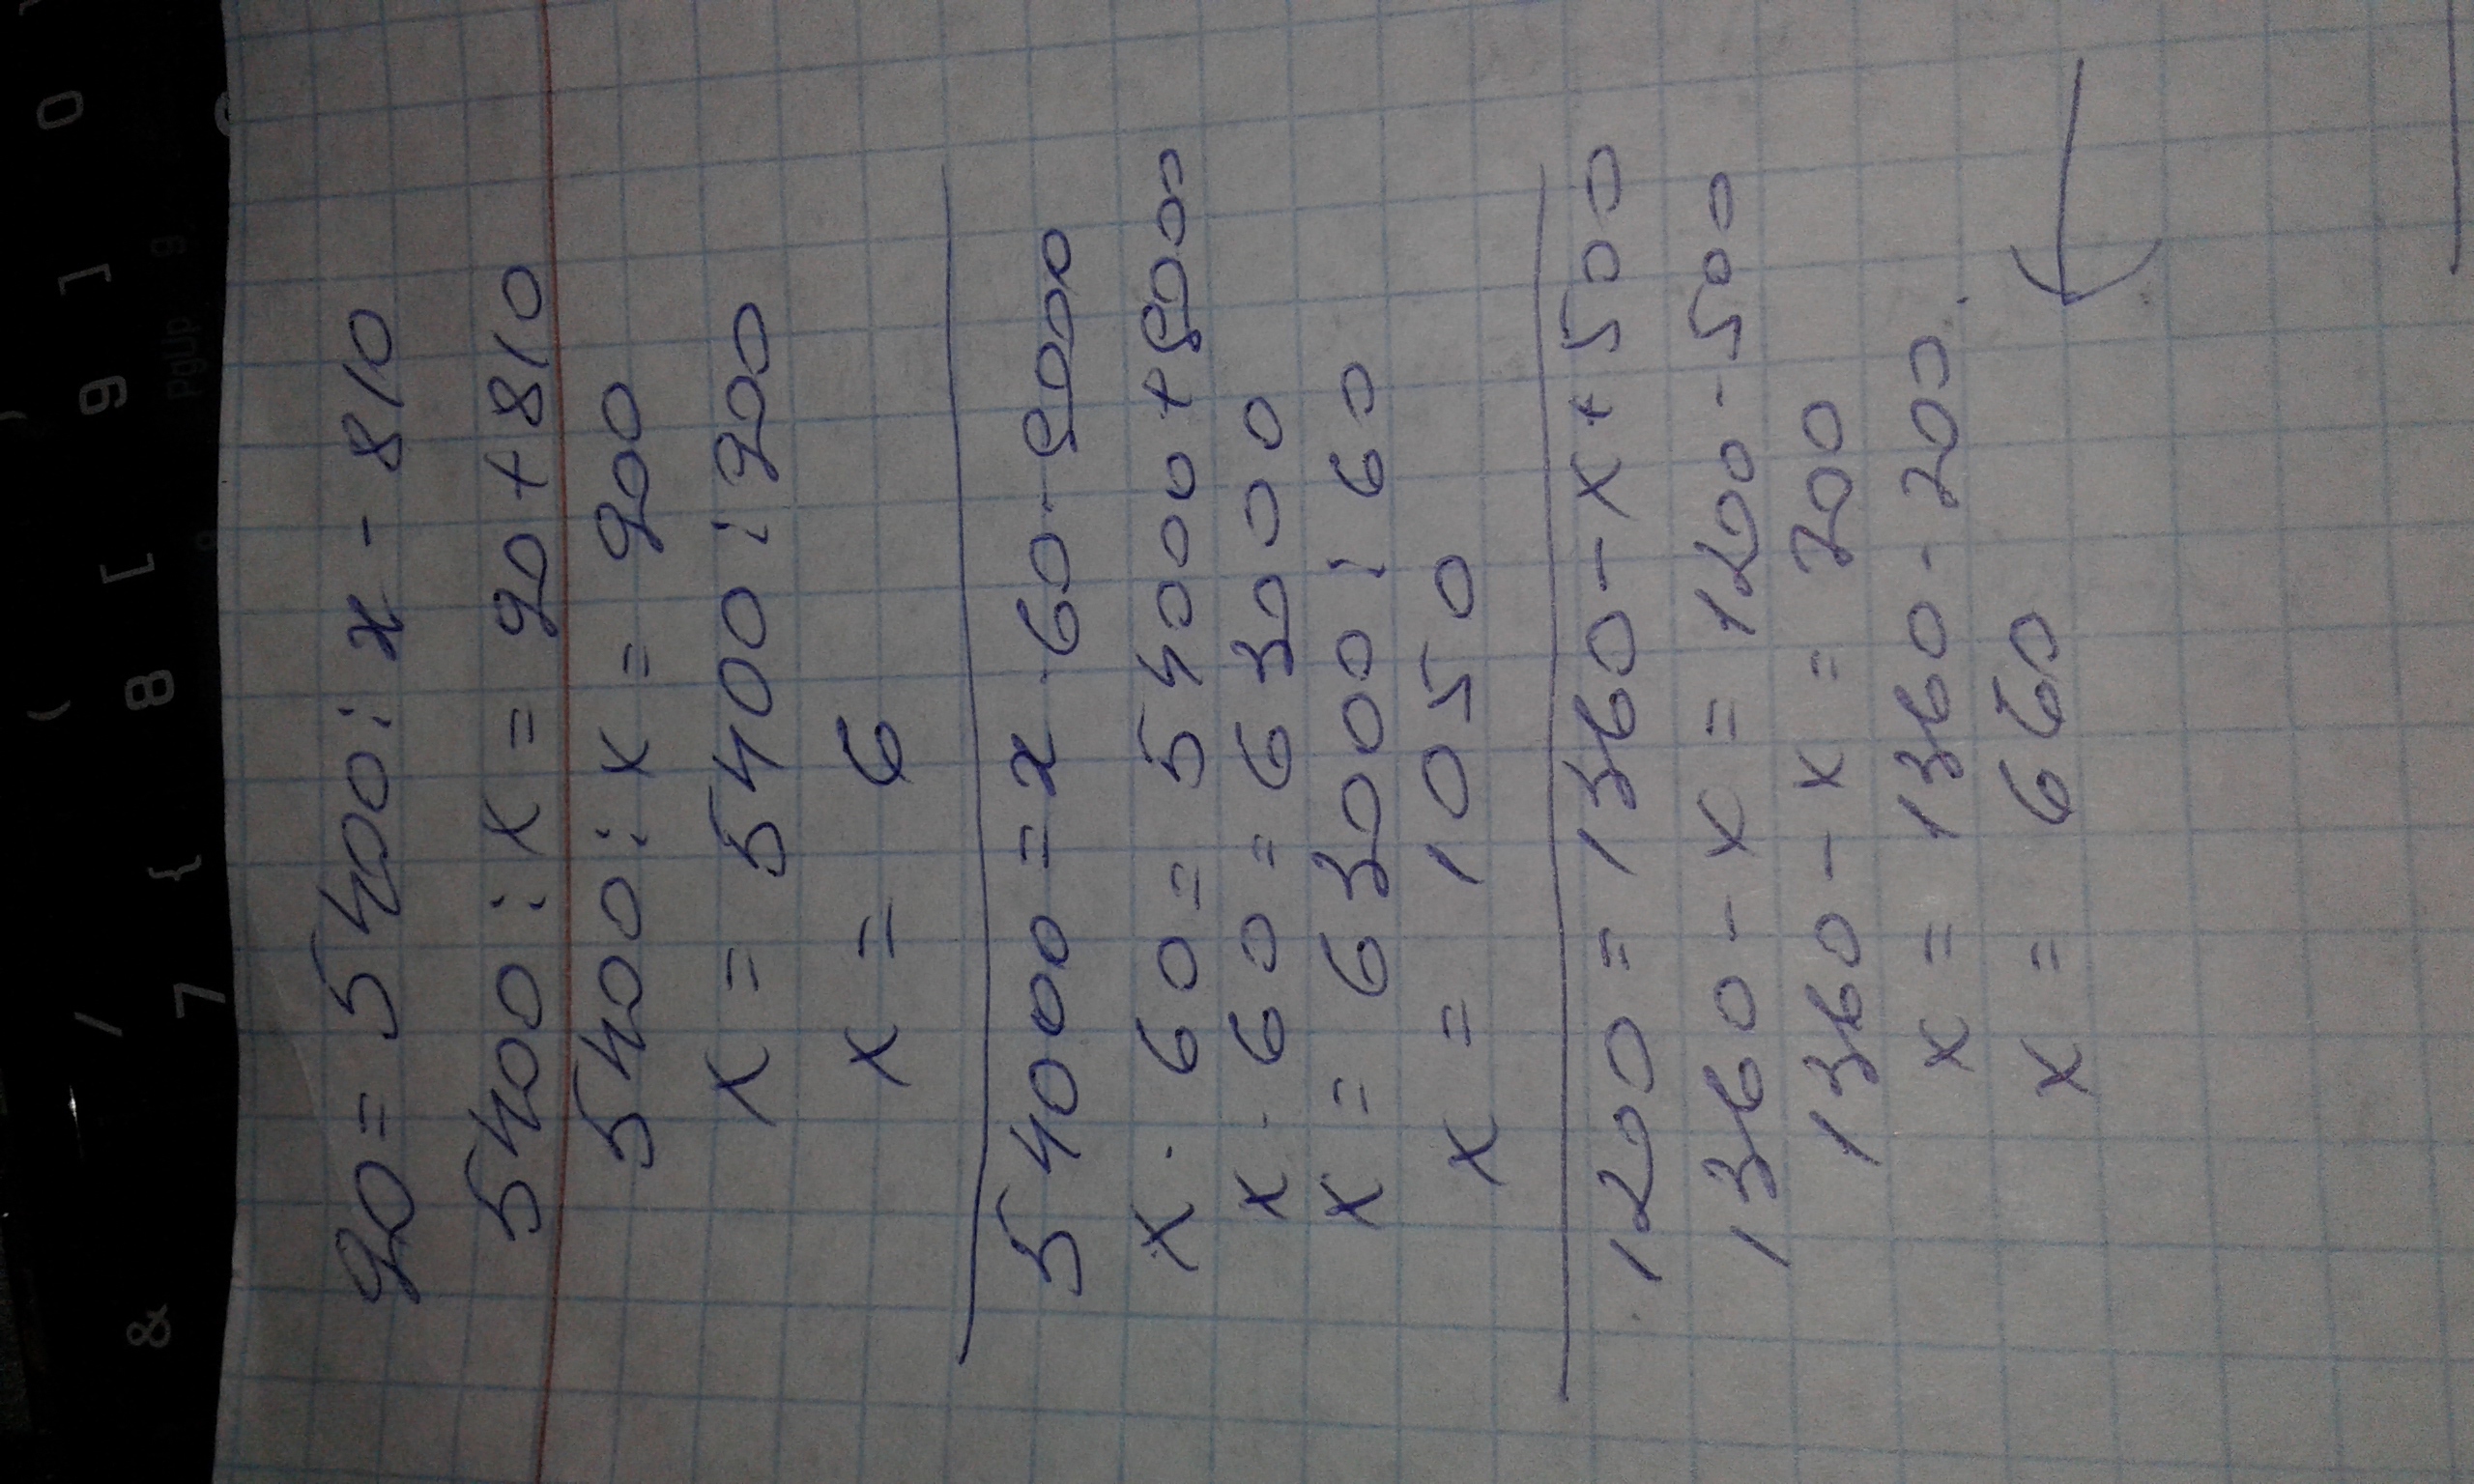 & 7 / { 8 [ ( 9 ] ) 0
PgUp 9
90 = 5400 : x - 810
5400 : x = 90 + 810
5400 : x = 900
x = 5400 : 900
x = 6
54000 = x · 60 - 9000
x · 60 = 54000 + 9000
x · 60 = 63000
x = 63000 : 60
x = 1050
1200 = 1360 - x + 500
1360 - x = 1200 - 500
1360 - x = 700
x = 1360 - 700
x = 660